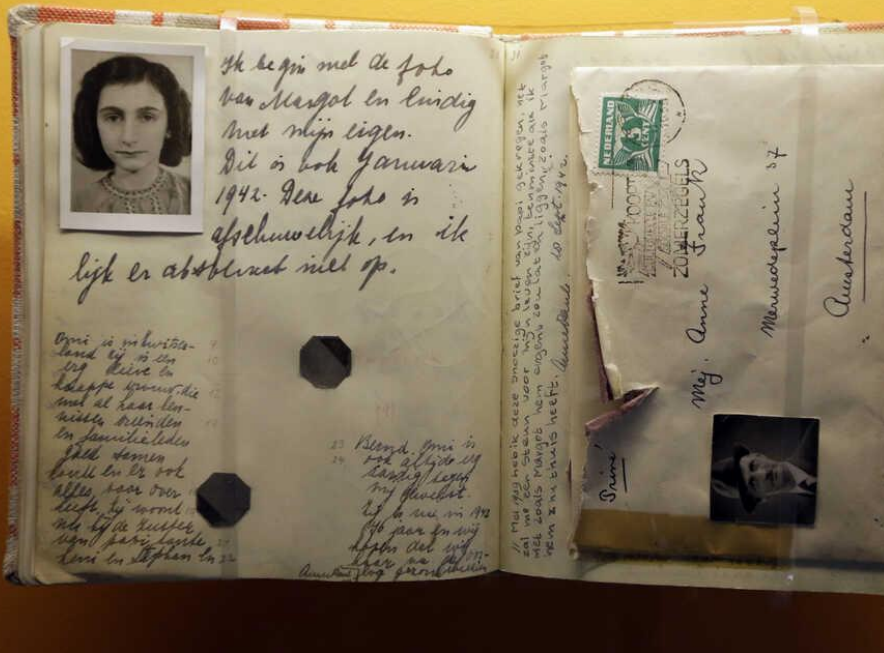 Ik begin met de foto
van Margot en eindig
met mijn eigen.
Dit is ook Januari
1942. Deze foto is
afschuwelijk, en ik
lijk er absoluut niet op.
Omi is in Zwitser-
land zij is een
erg lieve en
knappe vrouw, die
met al haar ken-
nissen vrienden
en familieleden
goed samen
en er ook
alles, voor over
heeft, zij woont
nu bij de zuster
van papi tante
Leni en Stephan en
Bernd. Omi is
ook altijd erg
aardig tegen
mij geweest.
Zij is nu in 1942
76 jaar en wij
hopen dat wij
haar na de
Anne Frank
deze snoezige brief van papi gekregen, het
zal me een steun voor mijn leven zijn, tenminste als ik
hem niet zoals Margot hem ergens zou laten liggen, zoals Margot
hem thuis heeft. Anne Frank. 10 Sept. 1942.
NEDERLAND
5
CENT
KOOPT
ZOMERZEGELS
Mej. Anne Frank
Merwedeplein 37
Amsterdam
Privé